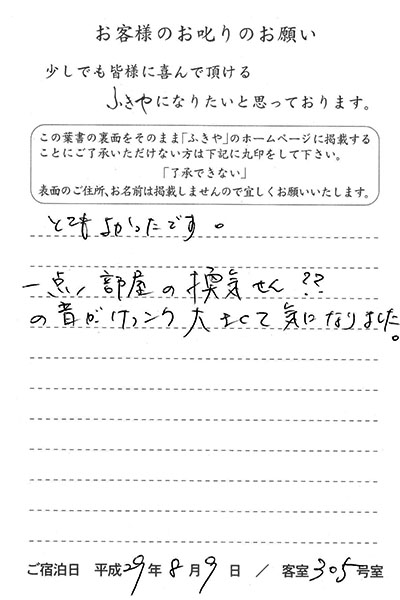 お客様のお叱りのお願い
少しでも皆様に喜んで頂ける
ふきやになりたいと思っております。
この葉書の裏面をそのまま「ふきや」のホームページに掲載する
ことにご了承いただけない方は下記に丸印をして下さい。
「了承できない」
表面のご住所、お名前は掲載しませんので宜しくお願いいたします。
とてもよかったです。
一点、部屋の換気せん??
の音がけっこう大きくて気になりました。
ご宿泊日 平成29年8月9日 / 客室305号室